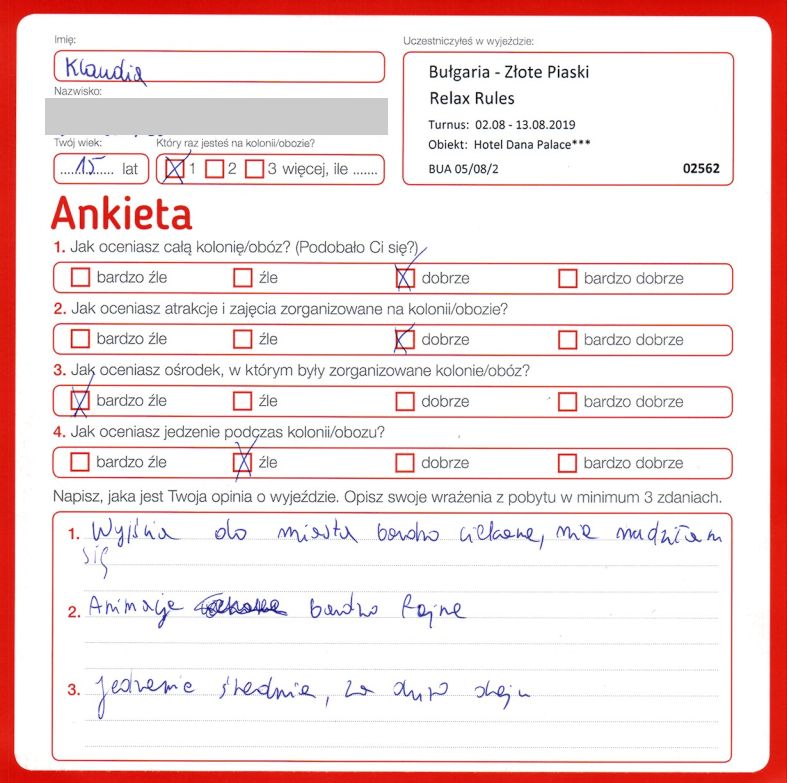 Imię:
Klaudia
Nazwisko:
Twój wiek:
Który raz jesteś na kolonii/obozie?
......15...... lat
1 2 3 więcej, ile .......
Uczestniczyłeś w wyjeździe:
Bułgaria - Złote Piaski
Relax Rules
Turnus: 02.08 - 13.08.2019
Obiekt: Hotel Dana Palace***
BUA 05/08/2 02562
Ankieta
1. Jak oceniasz całą kolonię/obóz? (Podobało Ci się?)
bardzo źle źle dobrze bardzo dobrze
2. Jak oceniasz atrakcje i zajęcia zorganizowane na kolonii/obozie?
bardzo źle źle dobrze bardzo dobrze
3. Jak oceniasz ośrodek, w którym były zorganizowane kolonie/obóz?
bardzo źle źle dobrze bardzo dobrze
4. Jak oceniasz jedzenie podczas kolonii/obozu?
bardzo źle źle dobrze bardzo dobrze
Napisz, jaka jest Twoja opinia o wyjeździe. Opisz swoje wrażenia z pobytu w minimum 3 zdaniach.
1. Wyjścia do miasta bardzo ciekawe, nie nudziłam
się
2. Animacje bardzo fajne
3. jedzenie średnie, za dużo oleju